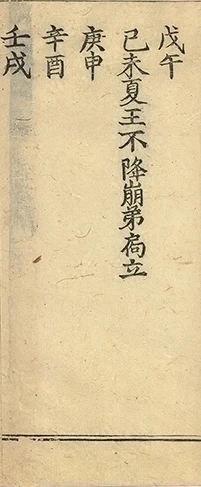 戊午
己未夏王不降崩弟扃立
庚申
辛酉
壬戌